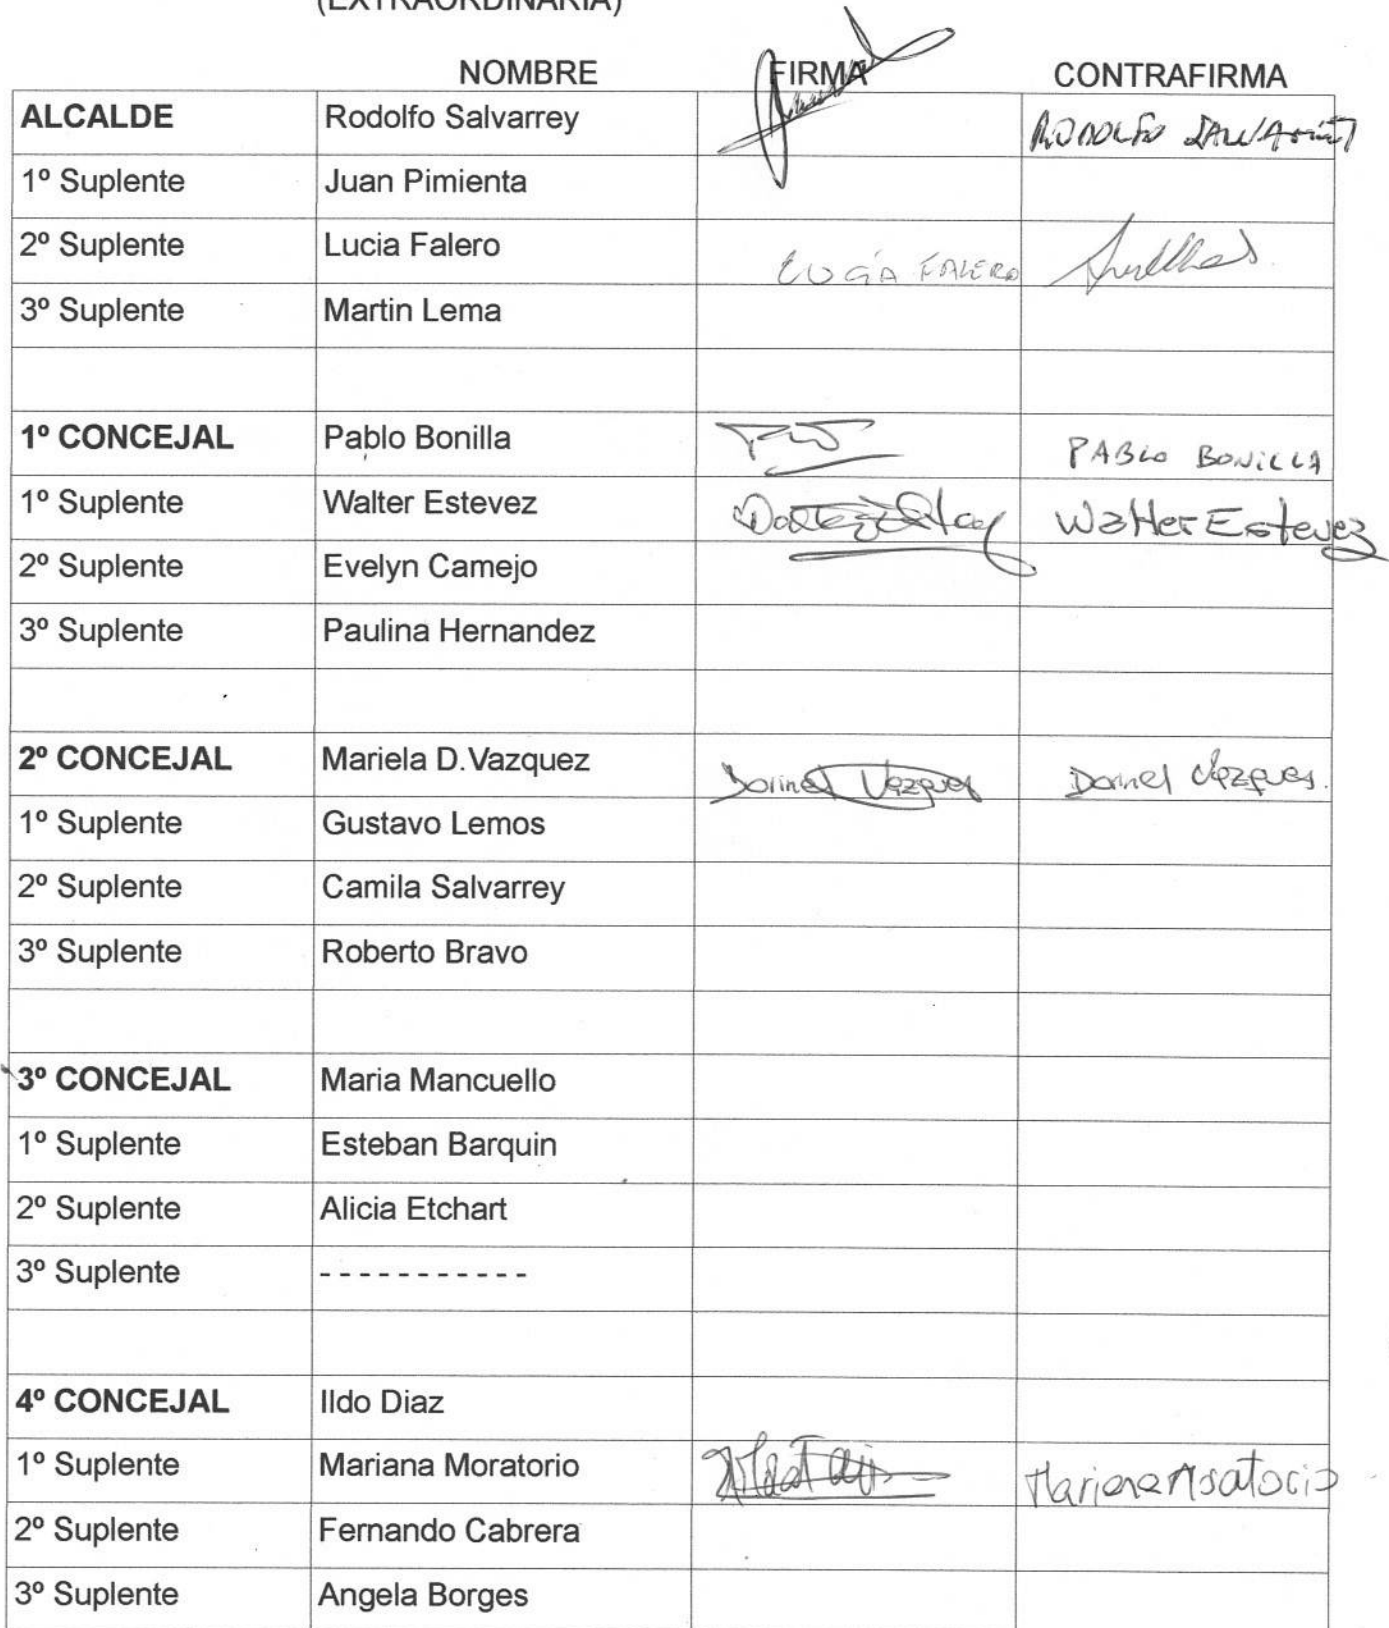 (EXTRAORDINARIA)
NOMBRE FIRMA CONTRAFIRMA
ALCALDE Rodolfo Salvarrey RODOLFO
1º Suplente Juan Pimienta
2º Suplente Lucia Falero LUCÍA FALERO
3º Suplente Martin Lema
1º CONCEJAL Pablo Bonilla PABLO BONILLA
1º Suplente Walter Estevez Walter Estevez
2º Suplente Evelyn Camejo
3º Suplente Paulina Hernandez
2º CONCEJAL Mariela D.Vazquez Vazquez
1º Suplente Gustavo Lemos
2º Suplente Camila Salvarrey
3º Suplente Roberto Bravo
3º CONCEJAL Maria Mancuello
1º Suplente Esteban Barquin
2º Suplente Alicia Etchart
3º Suplente - - - - - - - - - - -
4º CONCEJAL Ildo Diaz
1º Suplente Mariana Moratorio Mariana Moratorio
2º Suplente Fernando Cabrera
3º Suplente Angela Borges